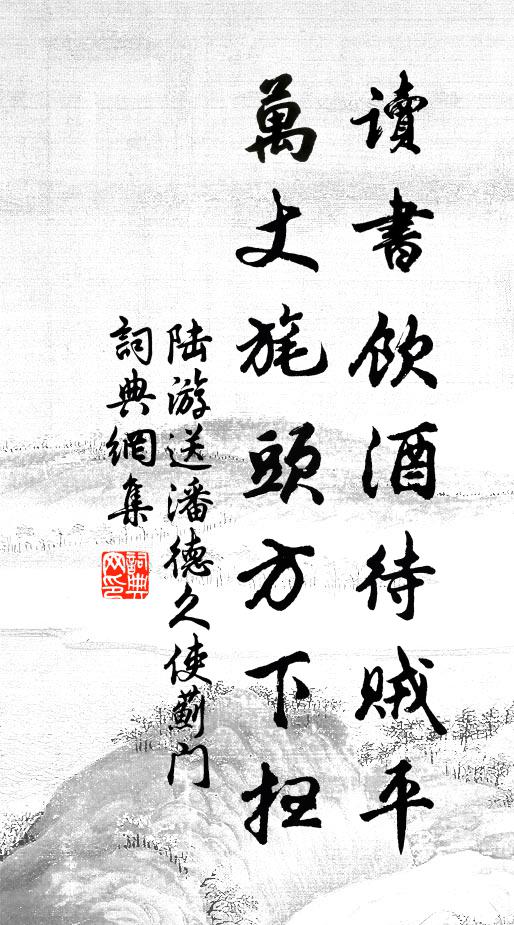 讀書飲酒待賊平
萬丈旄頭方下扫
陆游送潘德久使薊门
詞典網集
詞典网印